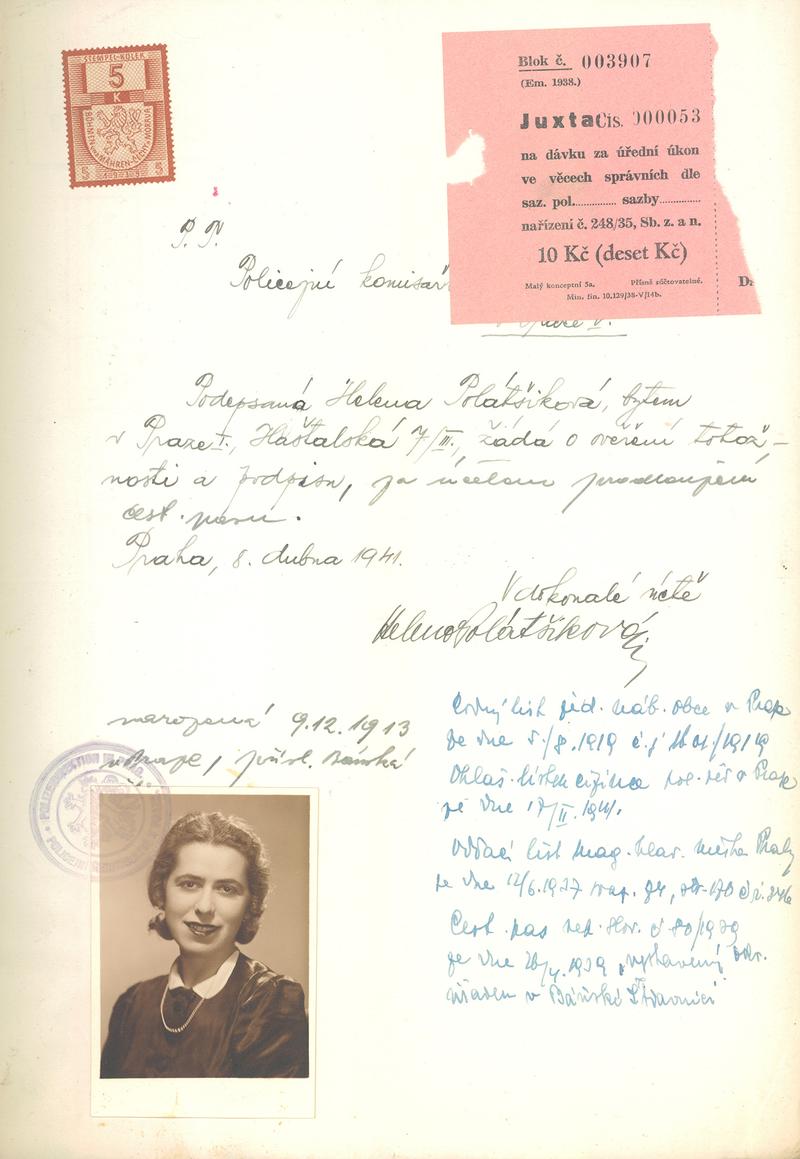 STEMPEL-KOLEK
5
K
BÖHMEN UND MÄHREN-ČECHY A MORAVA
5 5
Blok č. 003907
(Em. 1938.)
Juxta Čís. 000053
na dávku za úřední úkon
ve věcech správních dle
saz. pol. sazby
nařízení č. 248/35, Sb. z. a n.
10 Kč (deset Kč)
Malý konceptní 5a. Přísně súčtovatelné.
Min. fin. 10.129/38-V/14b.
P. T.
Policejní komisař
Podepsaná Helena Polátšiková, bytem
v Praze I., Haštalská 7/III., žádá o ověření totož-
nosti a podpisu, za účelem prodloužení
cest. pasu.
Praha, 8. dubna 1941.
V dokonalé úctě
Helena Polátšiková
narozená 9.12.1913
v Praze, přísl. Bánská
POLIZEIDIREKTION IN PRAG
POLICEJNÍ
list žid. náb. obce v Praze
ze dne 5./8. 1919 č.j. /1919
Ohlaš. lístek cizince pol. řed. v Praze
ze dne 17/II. 1941.
Oddací list mag. hlav. města Prahy
ze dne 12/6. 1937 , str. 170 č.ř. 346
Cest. pas č. 80/1939
ze dne 1939 vystavený okr.
úřadem v Báňské Štiavnici